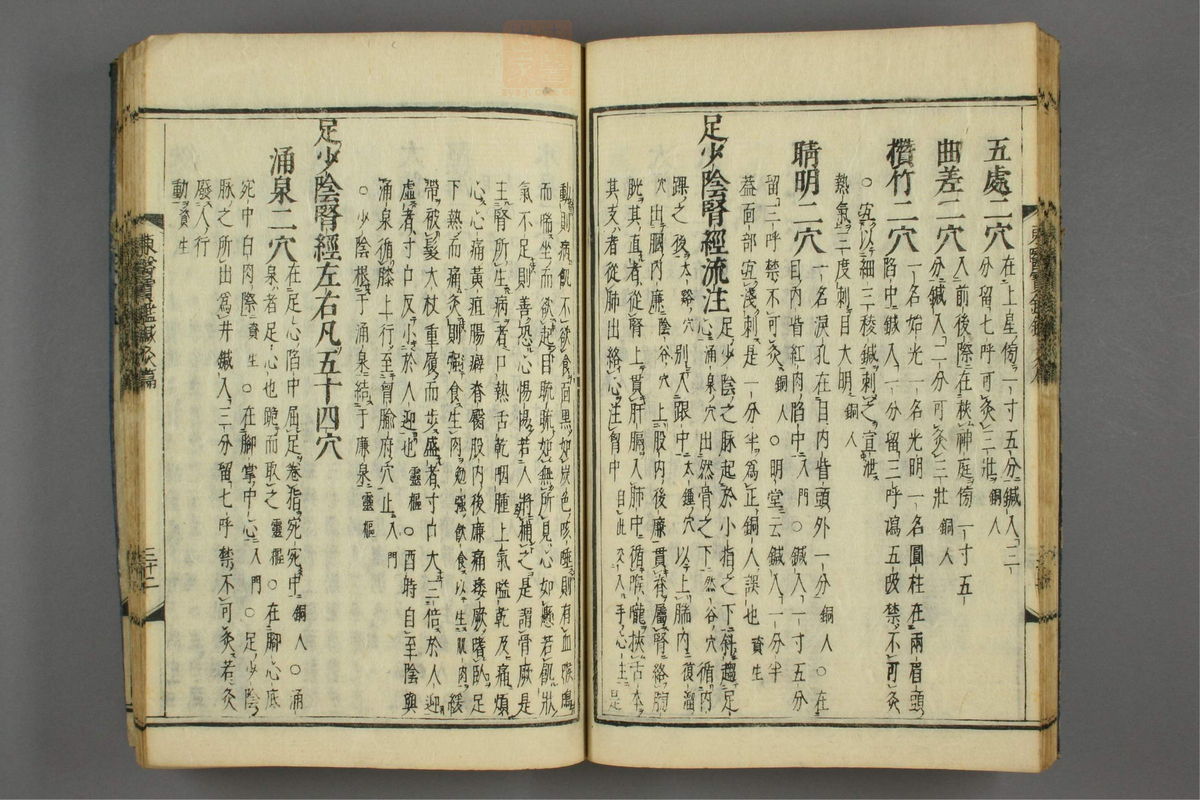 五處二穴在上星傍一寸五分鍼入三
分留七呼可灸三壯銅人
曲差二穴在神庭傍一寸五
分入前後際在挾
分鍼入二分可灸三壯銅人
欑竹二穴一名始光一名光明一名圓柱在兩眉頭
陷中鍼入一分留三呼瀉五吸禁不可灸
○宜以細三稜鍼刺之宣泄
熱氣三度刺目大明銅人
睛明二穴一名淚孔在目內眥頭外一分銅人○在
目內眥紅肉陷中入門○鍼入一寸五分
留三呼禁不可灸銅人○明堂云鍼入一分半
盖面部宜淺刺是一分半爲正銅人誤也資生
足少陰腎經流注足少陰之脉起於小指之下斜趨足
心涌泉穴出然骨之下然谷穴循內
踝之後太谿穴別入跟中太鍾穴以上腨內復溜
穴出膕內廉陰谷穴上股內後廉貫脊屬腎絡膀
胱其直者從腎上貫肝膈入肺中循喉嚨挾舌本
其支者從肺出絡心注胷中自此交入手心主是
動則病飢不欲食面黑如炭色咳唾則有血喉鳴
而喘坐而欲起目䀮䀮如無所見心如懸若飢狀
氣不足則善恐心惕惕若人將補之是謂骨厥是
主腎所生病者口熱舌乾咽腫上氣嗌乾及痛煩
心心痛黃疸腸澼脊臀股內後廉痛痿厥嗜臥足
下熱而痛灸則強食生肉勉強飮食以生肌肉緩
帶被髮大杖重履而步盛者寸口大三倍於人迎
虛者寸口反小於人迎也靈樞○酉時自至陰與
涌泉循膝上行至胷腧府穴止入門
○少陰根于涌泉結于廉泉靈樞
足少陰腎經左右凡五十四穴
涌泉二穴在足心陷中屈足卷指宛宛中銅人○涌
泉者足心也跪而取之靈樞○在脚心底
宛中白肉際資生○在脚掌中心入門○足少陰
脉之所出爲井鍼入三分留七呼禁不可灸若灸
廢人行
動資生
東醫寶鑑鍼灸篇
三十二